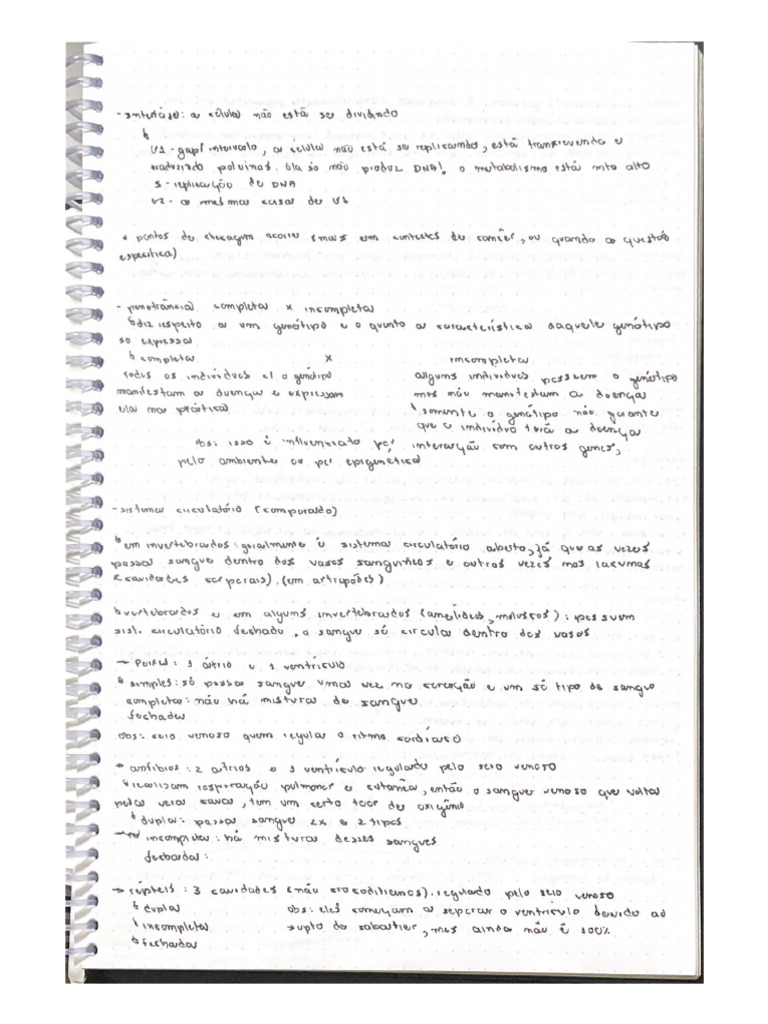 - interfase: a célula não está se dividindo
G1 - gap/intervalo, a célula não está se replicando, está transcrevendo e
traduzindo proteínas. Ela só não produz DNA! o metabolismo está mto alto
S - replicação de DNA
G2 - as mesmas coisas de G1
* pontos de checagem ocorre (mais em contextos de câncer, ou quando as questão
específica)
- penetrância completa x incompleta
↳ diz respeito a um genótipo e o quanto a característica daquele genótipo
se expressa
↳ completa x incompleta
todos os indivíduos c/ o genótipo alguns indivíduos possuem o genótipo
manifestam a doença e expressam mas não manifestam a doença
ela na prática ↳ somente o genótipo não garante
que o indivíduo terá a doença
obs: isso é influenciado pel interação com outros genes,
pelo ambiente ou pel epigenética
- sistema circulatório (comparado)
↳ em invertebrados: geralmente é sistema circulatório aberto, já que as vezes
passa sangue dentro dos vasos sanguíneos e outras vezes nas lacunas
(cavidades corporais). (em artrópodes)
↳ vertebrados e em alguns invertebrados (anelídeos, moluscos): possuem
sist. circulatório fechado, o sangue só circula dentro dos vasos
→ Peixes: 1 átrio e 1 ventrículo
↳ simples: só passa sangue uma vez no coração e um só tipo de sangue
completa: não há mistura de sangue
fechada
obs: seio venoso quem regula o ritmo cardíaco
→ anfíbios: 2 átrios e 1 ventrículo regulado pelo seio venoso
↳ realizam respiração pulmonar e cutânea, então o sangue venoso que volta
pela veia cava, tem um certo teor de oxigênio
↳ dupla: passa sangue 2x e 2 tipos
incompleta: há mistura desses sangues
fechada:
→ répteis: 3 cavidades (não crocodilianos). regulado pelo seio venoso
↳ dupla obs: eles começam a separar o ventrículo devido ao
↳ incompleta septo de sabatier, mas ainda não é 100%
↳ fechada